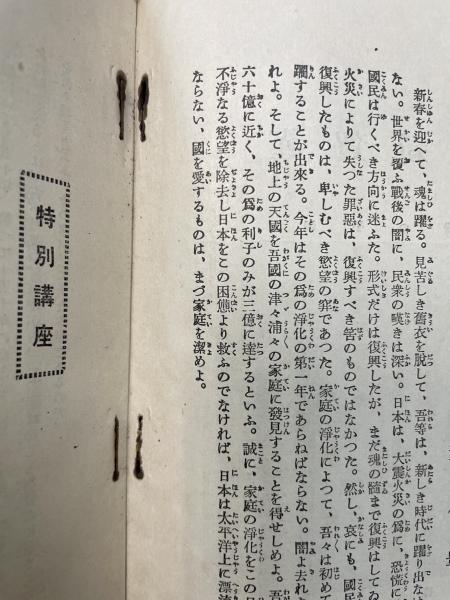 新春を迎へて、魂は躍る。見苦しき舊衣を脱して、吾等は、新しき時代に躍り出な
ない。世界を覆ふ戰後の闇に、民衆の嘆きは深い。日本は、大震火災の爲に、恐慌に
國民は行くべき方向に迷ふた。形式だけは復興したが、まだ魂の髓まで復興はしてゐ
火災によりて失つた罪惡は、復興すべき筈のものではなかつた。然し、哀にも、國民
復興したものは、卑しむべき慾望の穽であつた。家庭の淨化によつて、吾々は初めて
躍することが出來る。今年はその爲の淨化の第一年であらねばならない。闇よ去れ
れよ。そして、地上の天國を吾國の津々浦々の家庭に發見することを得せしめよ。吾
六十億に近く、その爲の利子のみが三億に達するといふ。誠に、家庭の淨化をこの
不淨なる慾望を除去し日本をこの困態より救ふのでなければ、日本は太平洋上に漂流
ならない、國を愛するものは、まづ家庭を潔めよ。
特別講座